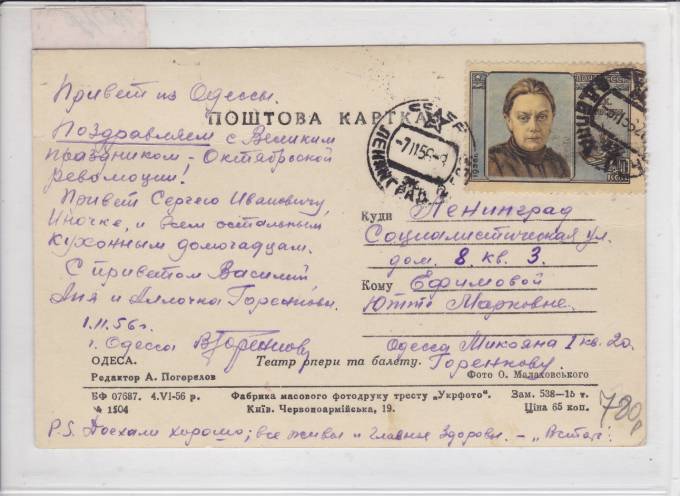 Привет из Одессы.
ПОШТОВА КАРТКА
Поздравляем с Великим
праздником - Октябрьской
революции!
Привет Сергею Ивановичу,
Иночке, и всем остальным
кухонным домочадцам.
С приветом Василий
Аня и Аллочка Горенковы.
1.11.56г.
г. Одесса ВГоренков
ЛЕНИНГРАД
-7 11 56
1956
КОП
Куди Ленинград
Социалистическая ул.
дом. 8. кв. 3.
Кому Ефимовой
Ютте Марковне.
Одесса Микояна 1 кв. 20.
Горенкову.
ОДЕСА. Театр опери та балету.
Редактор А. Погорелов Фото О. Малаховського
БФ 07687. 4.VI-56 р. Фабрика масового фотодруку тресту „Укрфото“. Зам. 538—15 т.
№ 1504 Київ. Червоноармійська, 19. Ціна 65 коп.
P.S. Доехали хорошо; все живы и главное здоровы. -